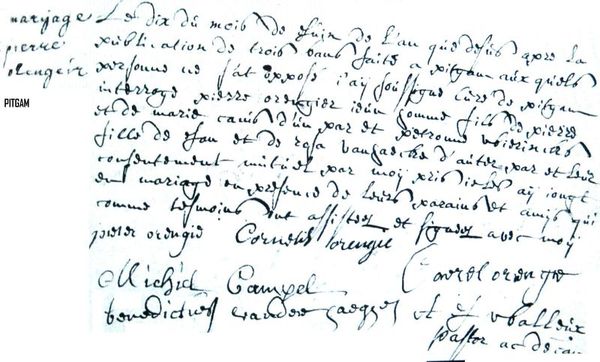 marjage
pierre
orengier
PITGAM
Le dix du mois de Juin de l'an que desus apre la
publication de trois bans faite a pitgam aux quels
personne ne s'at opposé j'aij soussigné Curé de pitgam
interrogé pierre orengier jeun homme fils de pierre
et de marie camis d'un par et petronne
fille de Jan et de rosa d'auter par et leur
consentement mutuel par moy pris je les aij joingt
en mariage en presence de leurs parains et amis qui
comme tesmoins ont assistes et signes avec moij
pieter orengie Cornelis orengie
Michiel Campel Carel orengie
benedictus vandee et
pastor